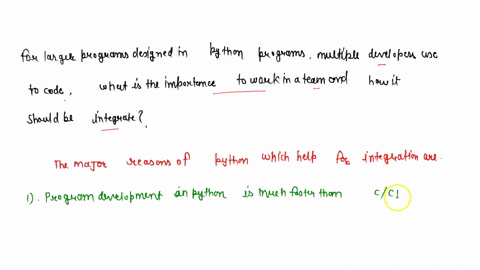 for larger programs designed in python programs, multiple developers use
to code, what is the importance to work in a team and how it
should be integrate?
The major reasons of python which help for integration are.
1). Program development in python is much faster than c/c